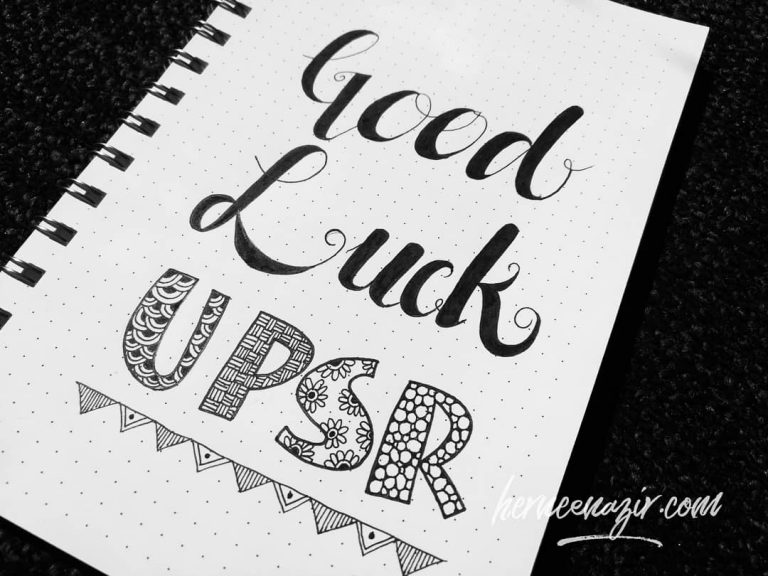 Good
Luck
UPSR
herneenazir.com